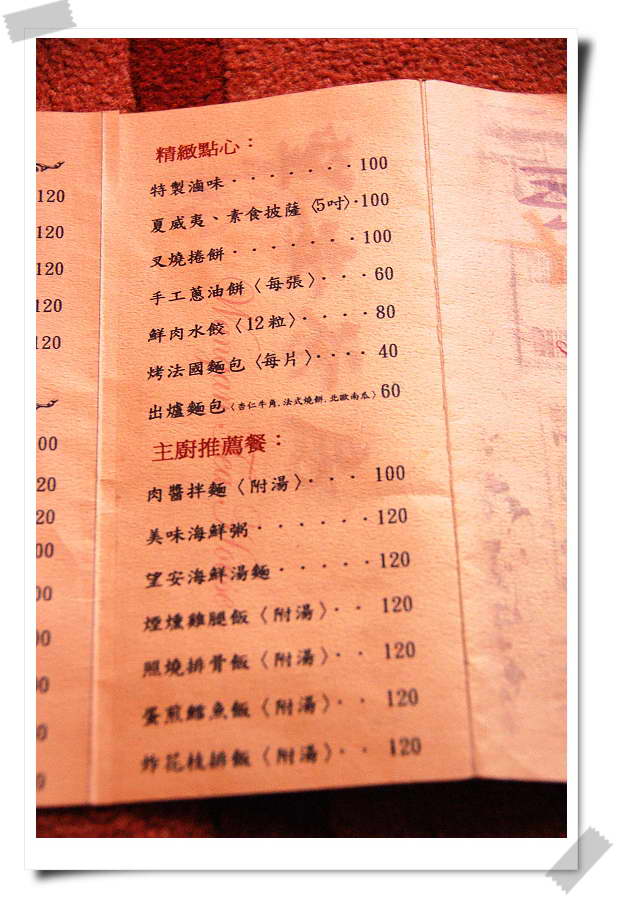 精緻點心：
特製滷味・・・・・・・100
夏威夷、素食披薩〈5吋〉・100
叉燒捲餅・・・・・・・100
手工蔥油餅〈每張〉・・・60
鮮肉水餃〈12粒〉・・・・80
烤法國麵包〈每片〉・・・・40
出爐麵包〈杏仁牛角,法式燒餅,北歐南瓜〉60
主廚推薦餐：
肉醬拌麵〈附湯〉・・・100
美味海鮮粥・・・・・・120
望安海鮮湯麵・・・・・120
煙燻雞腿飯〈附湯〉・・120
照燒排骨飯〈附湯〉・・120
蛋煎鱈魚飯〈附湯〉・・120
炸花枝排飯〈附湯〉・・120
120
120
120
120
120